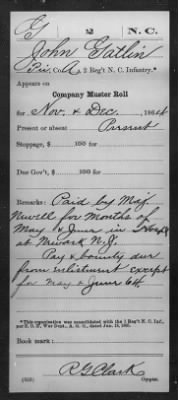 G 2 N.C.
John Gatlin
Pvt. Co. A, 2 Reg't N. C. Infantry.*
Appears on
Company Muster Roll
for Nov. & Dec., 1864
Present or absent Present
Stoppage, $ 100 for
Due Gov't, $ 100 for
Remarks: Paid by Maj.
Newell for months of
May & June in Hospl
at Newark N.J.
Pay & bounty due
from enlistment except
for May & June 64
*This organization was consolidated with the 1 Reg't N. C. Inf.,
Book mark:
R G Clark
Copyist.